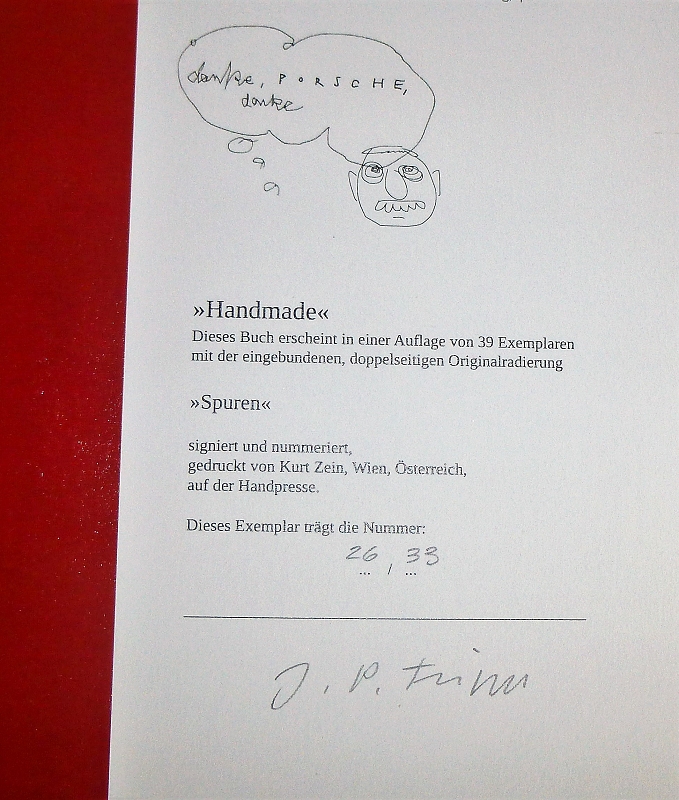 danke, PORSCHE,
danke
»Handmade«
Dieses Buch erscheint in einer Auflage von 39 Exemplaren
mit der eingebundenen, doppelseitigen Originalradierung
»Spuren«
signiert und nummeriert,
gedruckt von Kurt Zein, Wien, Österreich,
auf der Handpresse.
Dieses Exemplar trägt die Nummer:
26 / 33
... / ...
J. P.